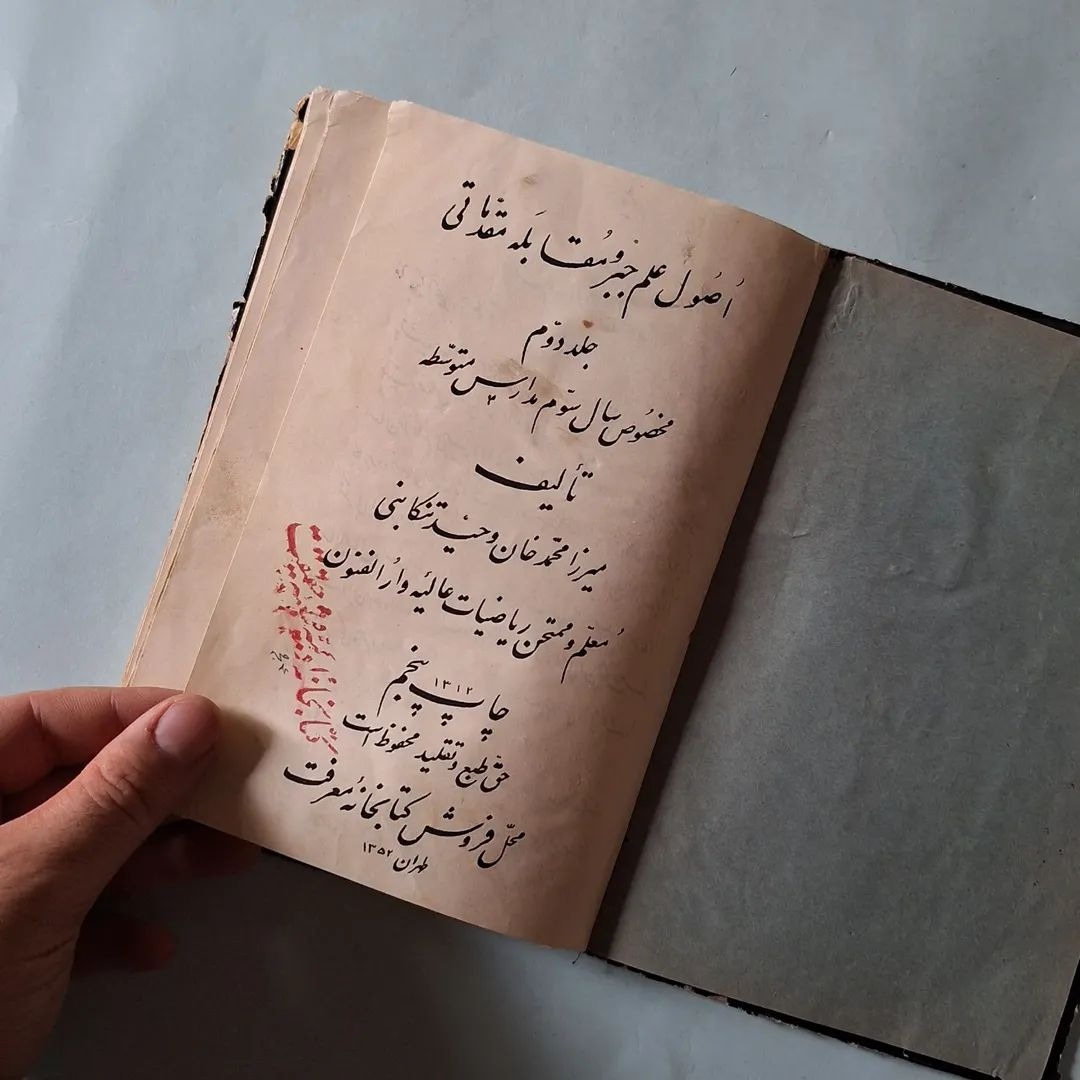 اُصُول علم جبر و مُقابَله مقدّماتی
جلد دوّم
مخصُوص سال سوّم مدارس متوسّطه
تألیف
میرزا محمّد خان وحید تنکابنی
مُعلّم و ممتحن ریاضیات عالیه دارُالفنون
چاپ پنجم ۱۳۱۲
حقّ طبع و تقلید محفوظ است
محلّ فروش کتابخانهٔ معرفت
طهران ۱۳۵۲